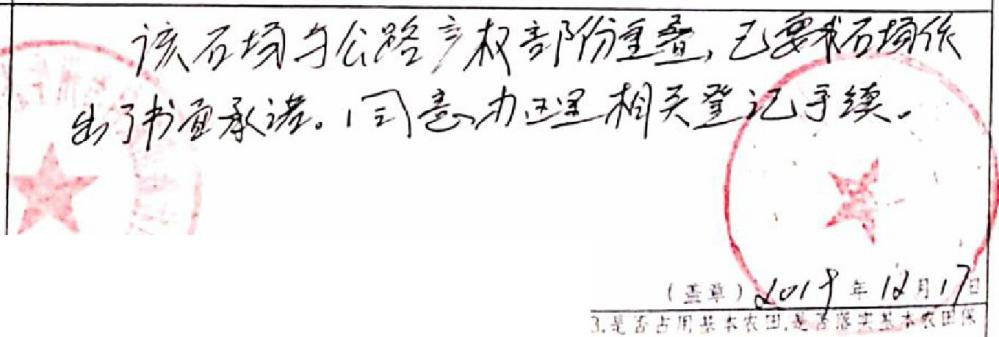 该石场与公路产权部份重叠,已要求石场作
出了书面承诺。同意办理相关登记手续。
(盖章)2019年12月17日
3.是否占用基本农田,是否落实基本农田保